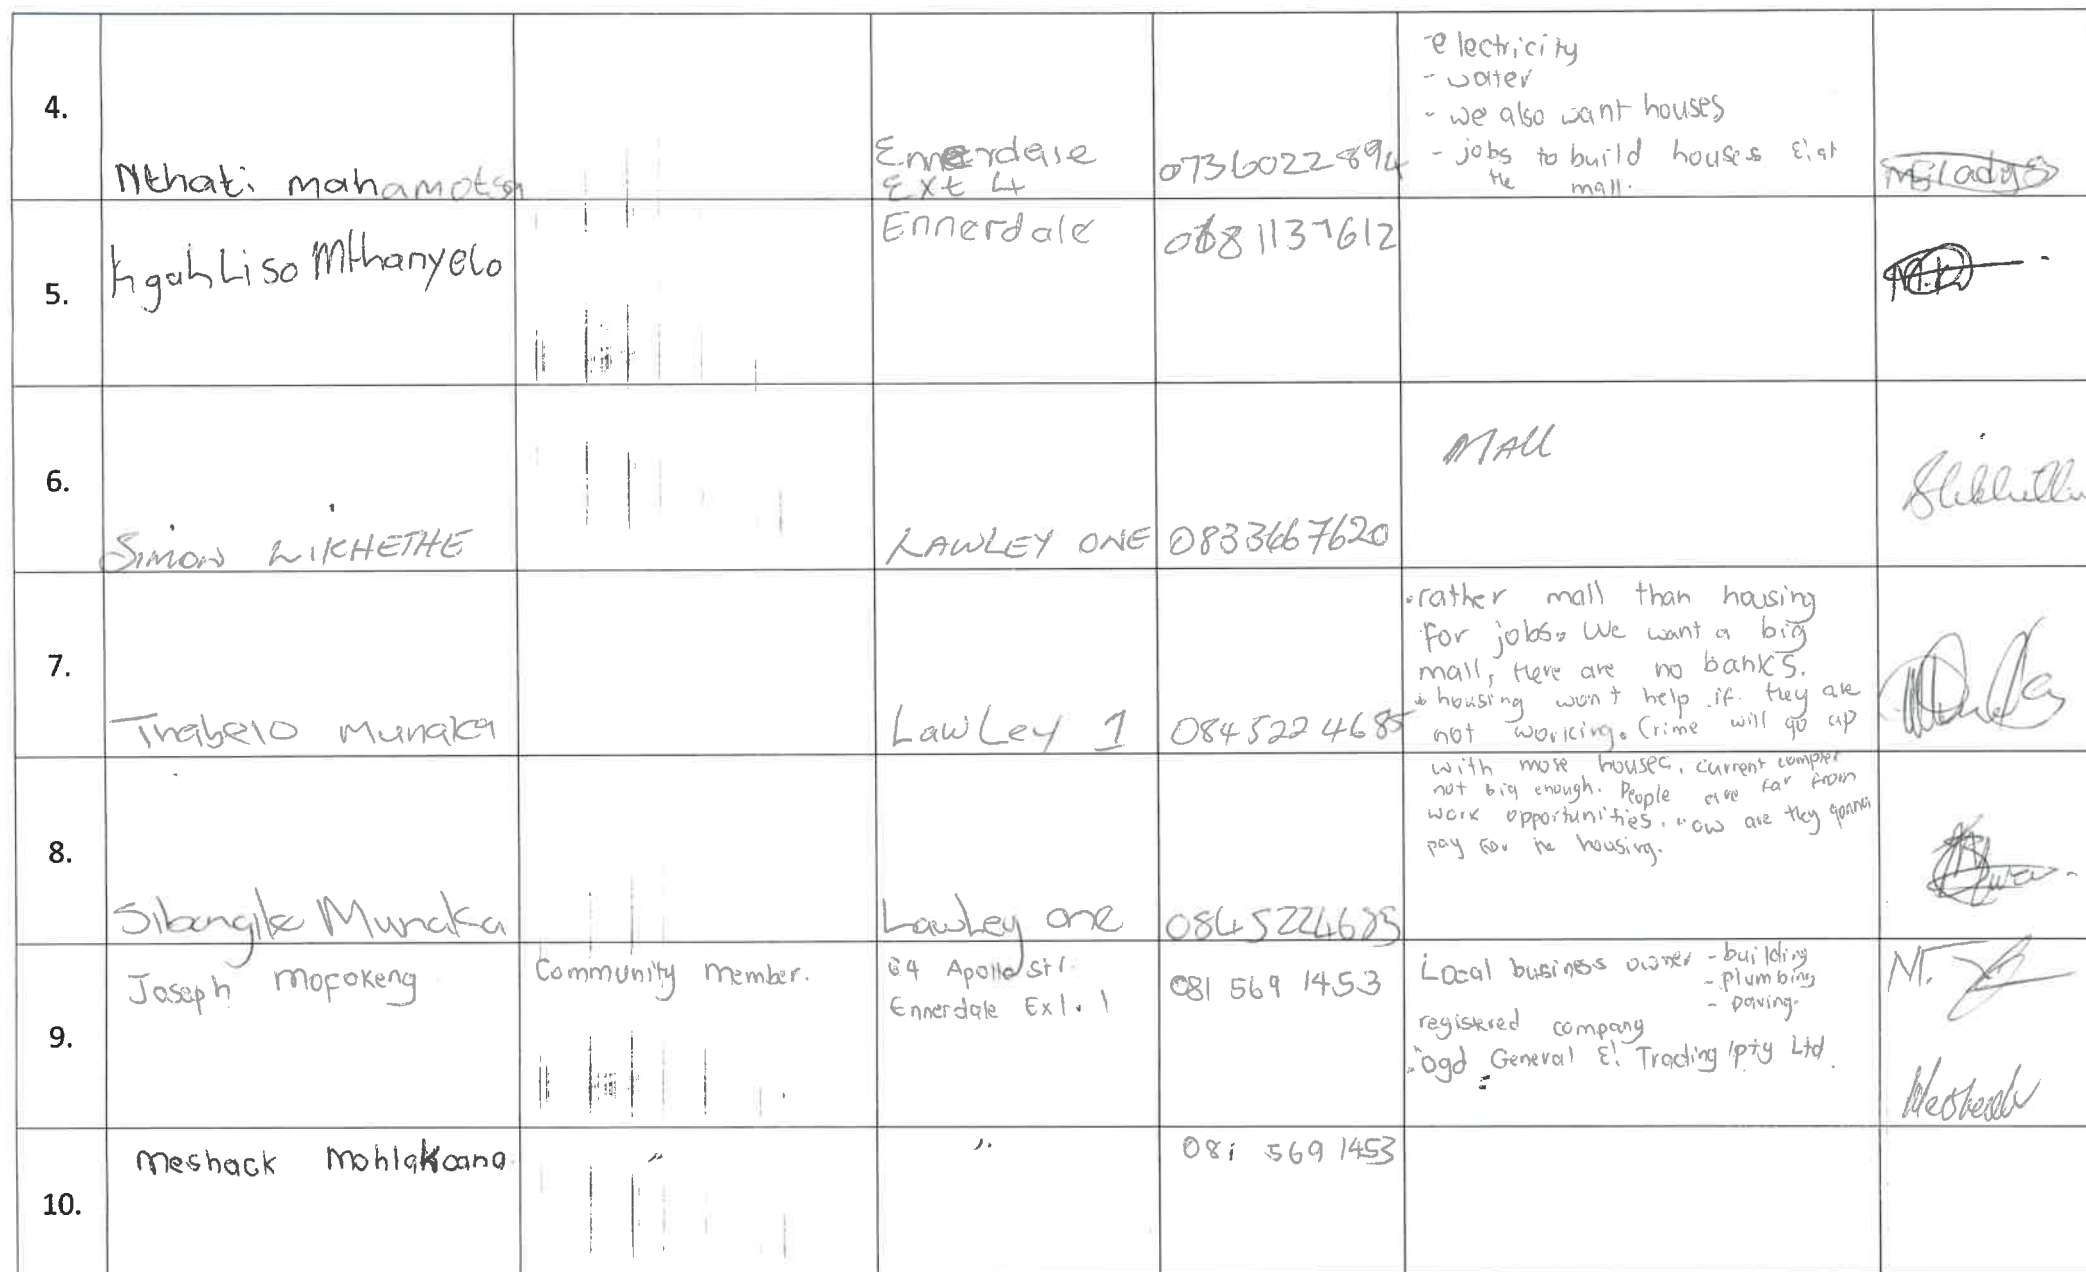 4.
Nthati mahamotsa
Ennerdale
Ext 4
0736022894
-electricity
- water
- we also want houses
- jobs to build houses & at
the mall.
5.
Mthanyelo
Ennerdale
1137612
6.
SIMON LIKHETHE
LAWLEY ONE
0833667620
MALL
7.
Thabelo Munaka
Lawley 1
0845224685
rather mall than housing
for jobs. We want a big
mall, there are no banks.
housing won't help if they are
not working. Crime will go up
8.
Munaka
Lawley one
with more houses, current complex
not big enough. People are far from
work opportunities. How are they gonna
pay for the housing.
9.
Joseph Mofokeng
Community member.
64 Apollo Str.
Ennerdale Ext. 1
081 569 1453
Local business owner - building
- plumbing
- paving.
registered company
General & Trading pty Ltd.
Meshack
10.
Meshack Mohlakoana
"
"
081 569 1453